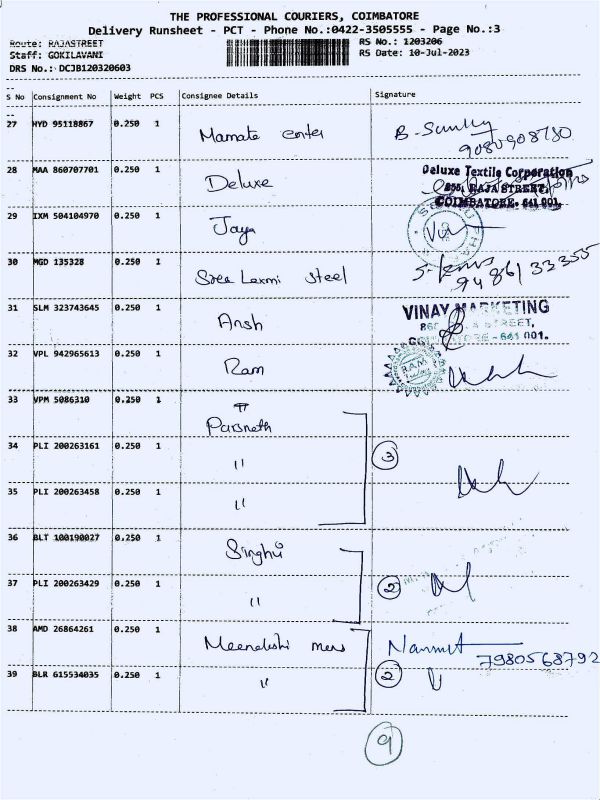 THE PROFESSIONAL COURIERS, COIMBATORE
Delivery Runsheet - PCT - Phone No.:0422-3505555 - Page No.:3
Route: RAJASTREET RS No.: 1203206
Staff: GOKILAVANI RS Date: 10-Jul-2023
DRS No.: DCJB120320603
S No Consignment No Weight PCS Consignee Details Signature
27 HYD 95118867 0.250 1 Mamata center B-
28 MAA 860707701 0.250 1 Deluxe Deluxe Textile Corporation
855, RAJA STREET,
COIMBATORE- 641 001.
29 IXM 504104970 0.250 1 Jaya
30 MGD 135328 0.250 1 Sree Laxmi Steel
94 86133355
31 SLM 323743645 0.250 1 Ansh VINAY MARKETING
STREET,
- 641 001.
32 VPL 942965613 0.250 1 Ram RAM
33 VPM 5086310 0.250 1 Parsnath
34 PLI 200263161 0.250 1 " 3
35 PLI 200263458 0.250 1 "
36 BLT 100190027 0.250 1 Singhvi
37 PLI 200263429 0.250 1 " 2
38 AMD 26864261 0.250 1 Meenakshi mens
7980568792
39 BLR 615534035 0.250 1 " 2
9